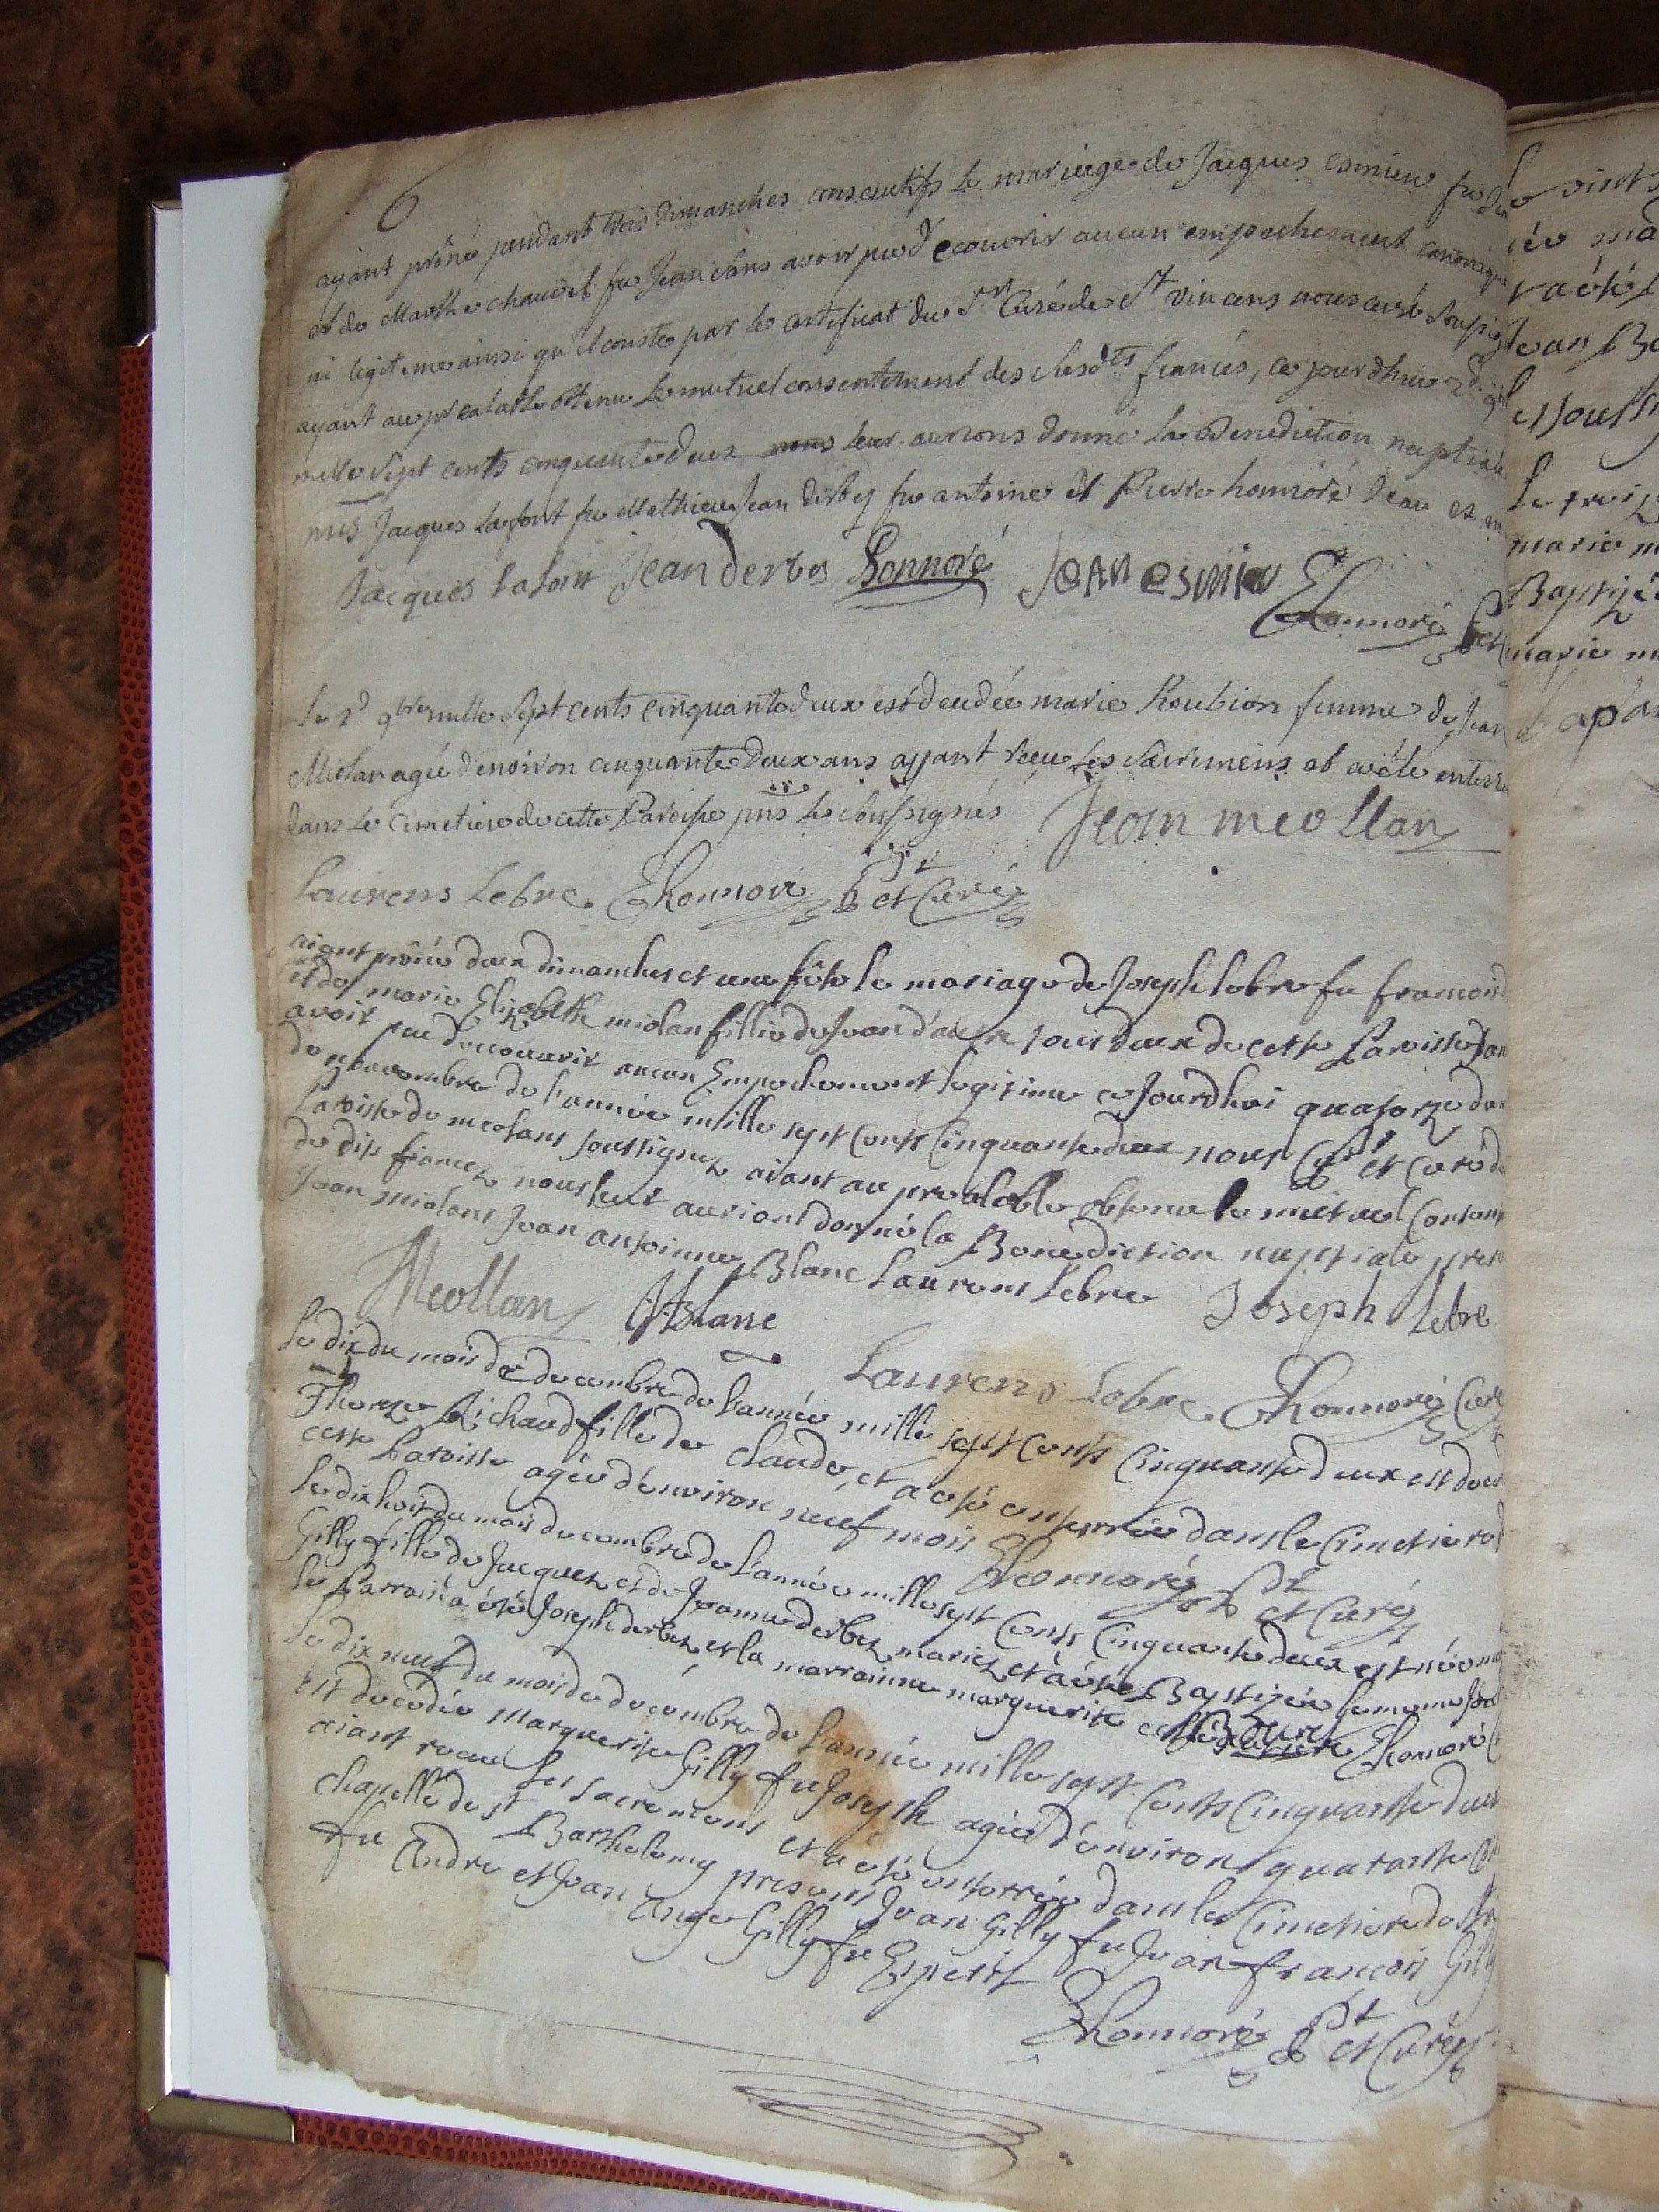 6
ayant prôné pendant trois dimanches consecutifs le mariage de Jacques esmieu fu
et de Marthe chauvet fu Jean sans avoir pu decouvrir aucun empechement canonique
ni legitime ainsi qu'il conste par le certificat du Sr Curé de St vincens nous curé soussig
ayant au prealable obtenu le mutuel consentement des susdts fiancés, ce jourdhui 2d 9b
mille sept cents cinquante deux nous leur aurions donné la Benediction nuptiale
pnts Jacques lafont fu Mathieu Jean derbes fu antoine et Pierre honnoré Jean es
Jacques lafont Jean Derbes honnoré JeAn esmieu
Ehonnoré
Le 2d 9bre mille sept cents cinquante deux est decedée marie Roubion femme de Jean
Miolan agée d'environ cinquante deux ans ayant receu les sacremens et a été enterré
dans le cimetiere de cette Paroisse pnts les soussignés Jean meollan
Laurens Lebre Ehonnoré ptre et Curé
aiant prôné deux dimanches et une fête le mariage de Joseph lebre fu francois
et de marie Elizabeth miolan fillie de Jean d'autre tous deux de cette Paroisse san
avoir pu decouvrir aucun Empechement legitime ce Jourdhui quatorze du
de novembre de l'année mille sept cents Cinquante deux nous ptre et Curé de
Paroisse de meolans soussignez aiant au prealable obtenu le mutuel Consent
de dits fiancez nous leur aurions donné la Benediction nuptiale pres
Jean miolans Jean antoinne Blanc Laurens Lebre Joseph Lebre
Meollan JABlanc
Laurens Lebre Ehonnoré Curé
Le dix du mois de decembre de l'année mille sept cents Cinquante deux est deced
Therese Richaud fille de Claude, et a eté enterrée dans le Cimetiere d
cette Paroisse agée d'environ neuf mois Ehonnoré ptre et Curé
Le dix huit du mois decembre de l'année mille sept Cents Cinquante deux est née
Gilly fille de Jacques et de Jeanne derbez mariez et a été Baptizée le meme
le Parrain a eté Joseph derbez et la marrainne marguerite Ehonnoré
Le dix neuf du mois de decembre de l'année mille sept Cents Cinquante deux
est decedée Marguerite Gilly fu Joseph agée d'environ quarante
aiant receu les sacremens et a eté enterrée dans le Cimetiere de
Chapelle de st Barthelemy presens Jean Gilly fu Jean francois Gilly
fu Andre et Jean Ange Gilly fu Esperit
Ehonnoré ptre et Curé